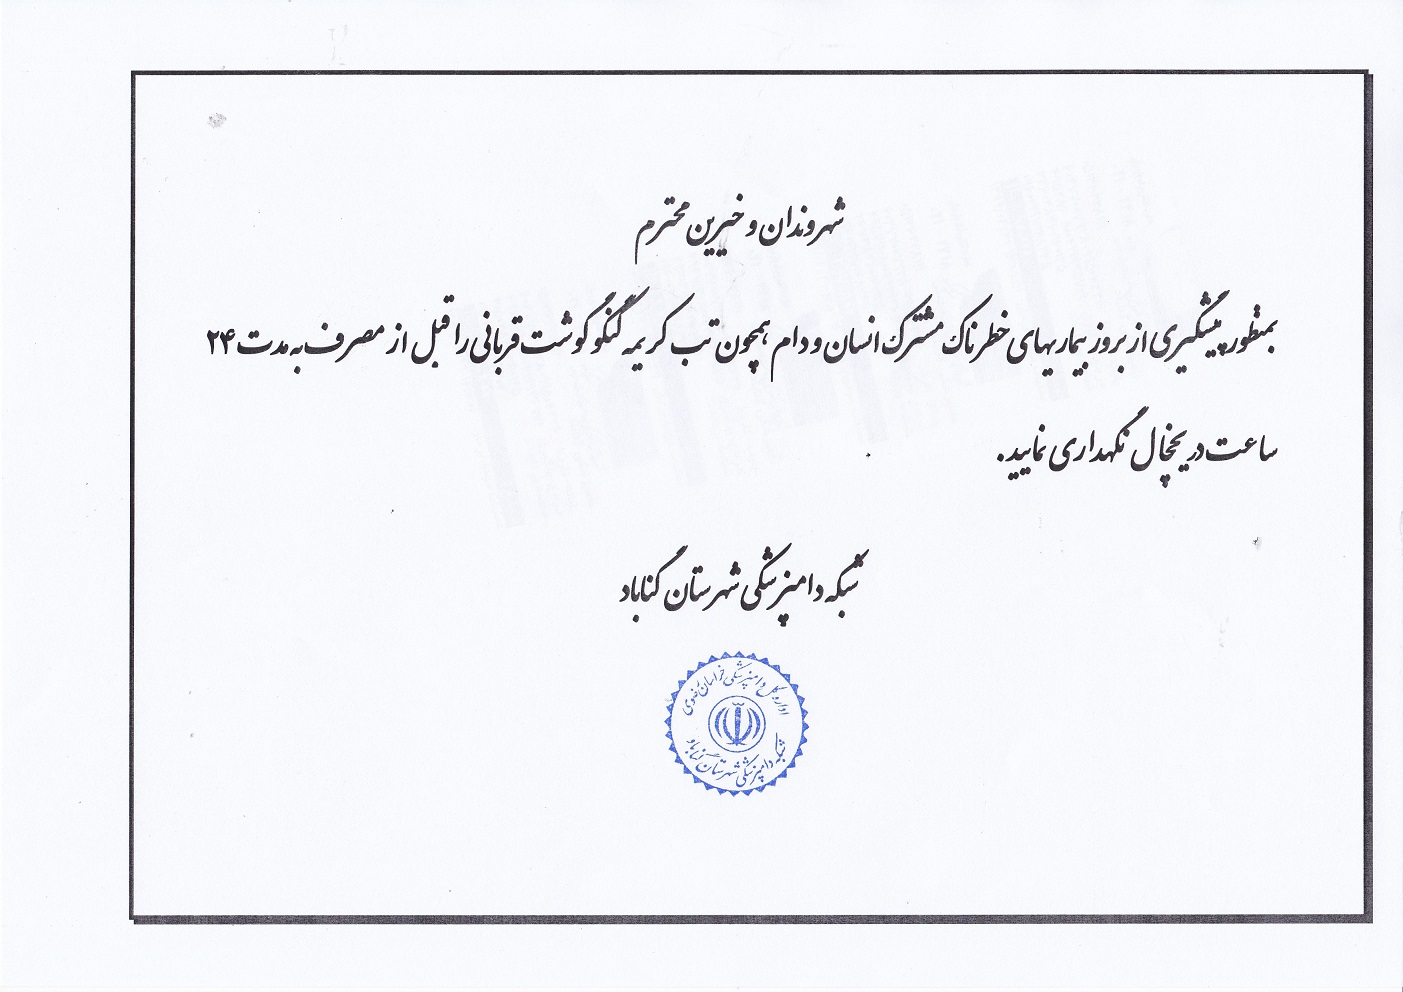 شهروندان و خیرین محترم
بمنظور پیشگیری از بروز بیماریهای خطرناک مشترک انسان و دام همچون تب کریمه کنگو گوشت قربانی را قبل از مصرف به مدت ۲۴
ساعت در یخچال نگهداری نمایید.
شبکه دامپزشکی شهرستان گناباد
اداره کل دامپزشکی خراسان رضوی
شبکه دامپزشکی شهرستان گناباد